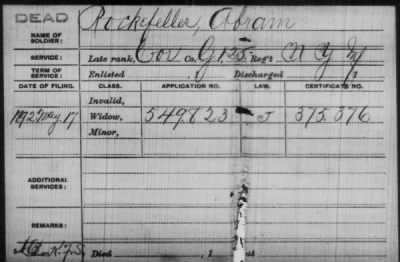 DEAD
NAME OF SOLDIER: Rockefeller, Abram
SERVICE: Late rank, Cor Co. G 125 Reg't N Y
TERM OF SERVICE: Enlisted , Discharged , 1
DATE OF FILING. CLASS. APPLICATION NO. LAW. CERTIFICATE NO.
Invalid,
1892 May 17 Widow, 549.823 J 375.376
Minor,
ADDITIONAL SERVICES:
REMARKS:
Died , 1 , at